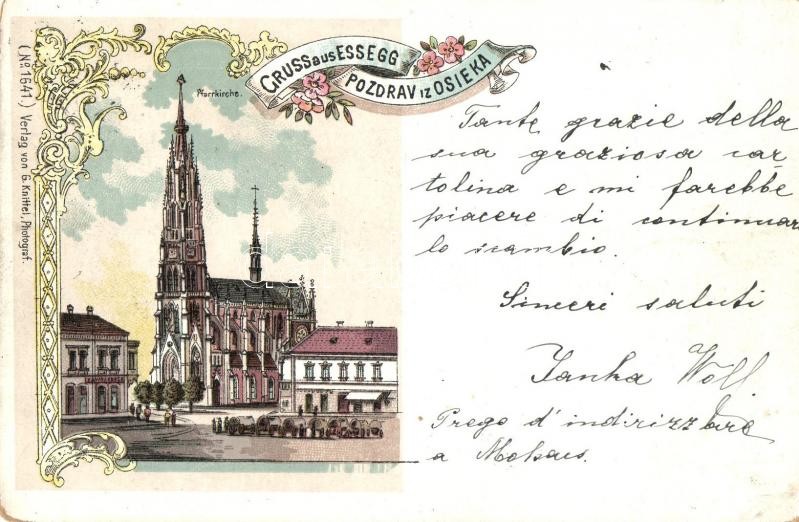 GRUSS aus ESSEGG
POZDRAV IZ OSIEKA
Pfarrkirche.
(No 1641.) Verlag von G. Knittel, Photograf.
Tante grazie della
sua graziosa car
tolina e mi farebbe
piacere di continuar
lo scambio.
Sinceri saluti
Janka Woll
Prego d'indirizzare
a Mohacs.